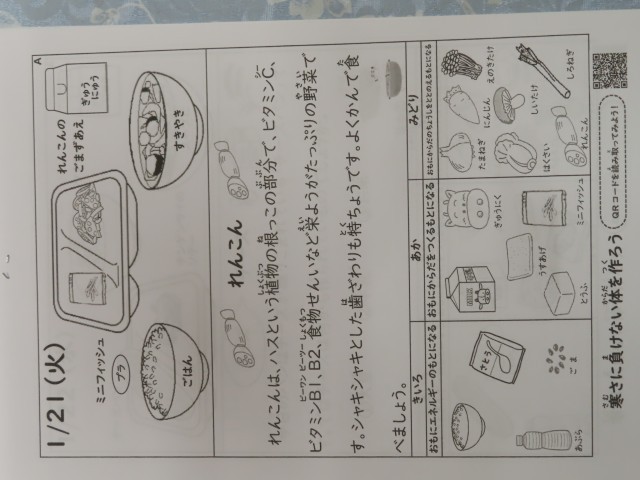 寒さに負けない体を作ろう
QRコードを読み取ってみよう！
A
1/21(火)
ミニフィッシュ
プラ
ごはん
れんこんの
ごまずあえ
ぎゅう
にゅう
すきやき
れんこん
れんこんは、ハスという植物の根っこの部分で、ビタミンC、
ビタミンB1、B2、食物せんいなど栄ようがたっぷりの野菜で
す。シャキシャキとした歯ざわりも特ちょうです。よくかんで食
べましょう。
きいろ
おもにエネルギーのもとになる
あか
おもにからだをつくるもとになる
みどり
おもにからだのちょうしをととのえるもとになる
さとう
ごま
あぶら
ぎゅうにく
ミニフィッシュ
うすあげ
とうふ
えのきたけ
しろねぎ
にんじん
しいたけ
れんこん
たまねぎ
はくさい